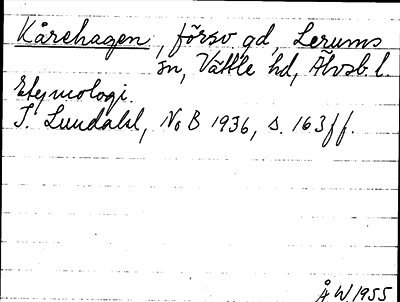 Kårehagen, försv. gd, Lerums
sn, Vättle hd, Älvsb. l.
Etymologi.
I. Lundahl, NoB 1936, s. 163ff.
Å W. 1955